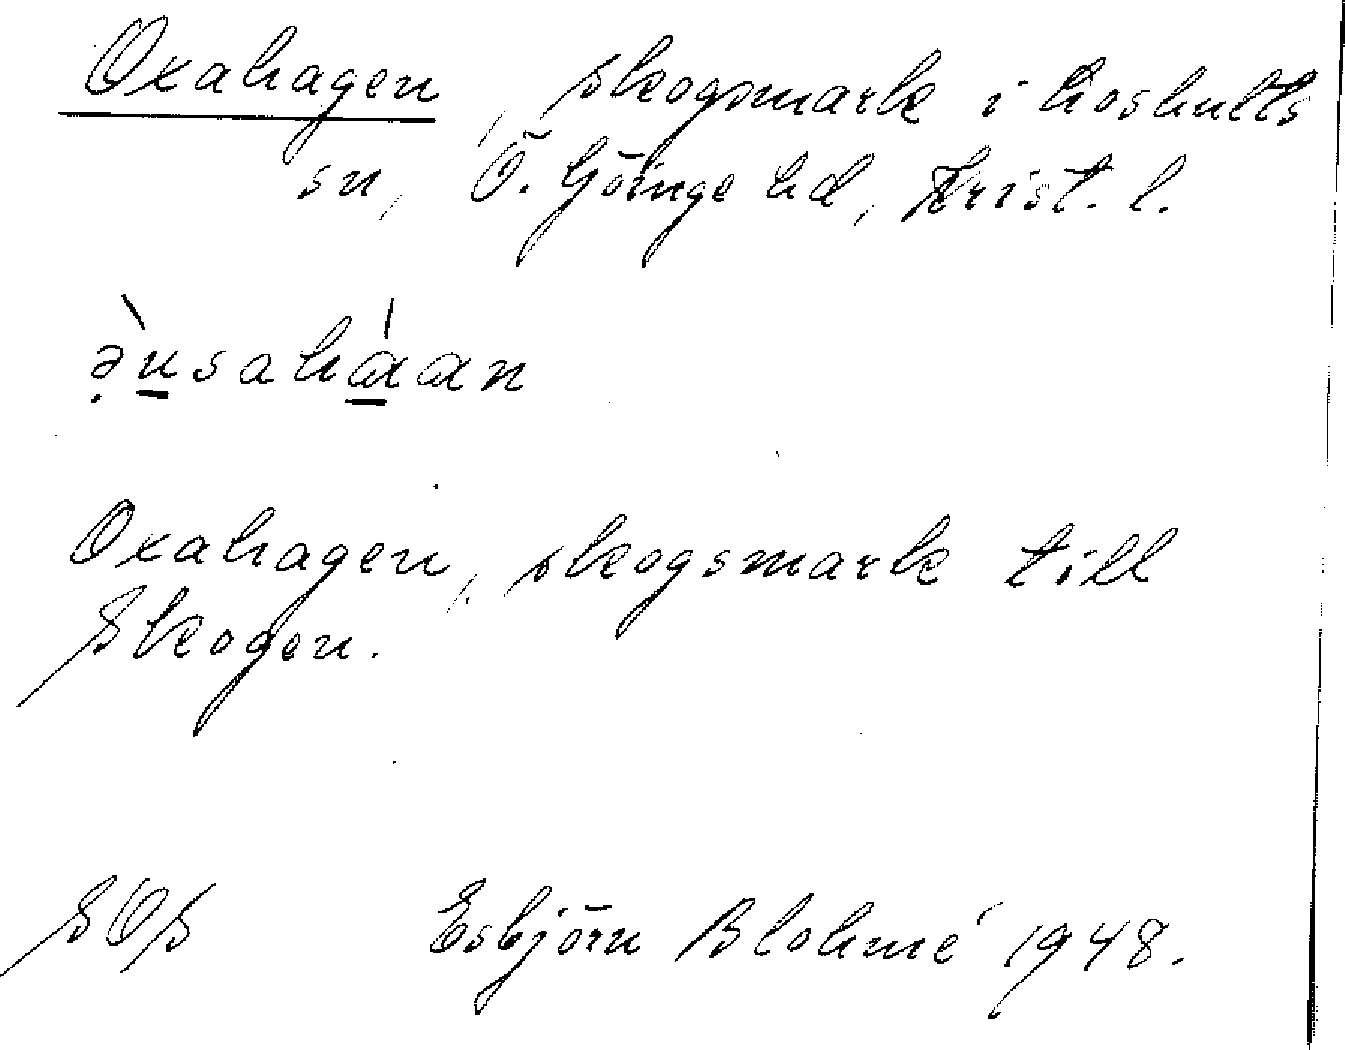 Oxahagen, skogsmark i Loshults
sn, Ö. Göinge hd, Krist. l.
ə̣̀u̲sahɑ̲́ɑn
Oxahagen, skogsmark till
Skogen.
SOS Esbjörn Blohmé 1948.